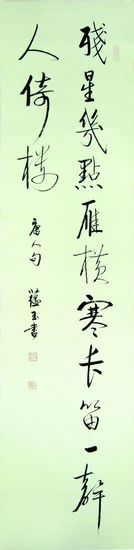 殘星幾點雁橫塞長笛一聲
人倚樓
唐人句
蘊玉書